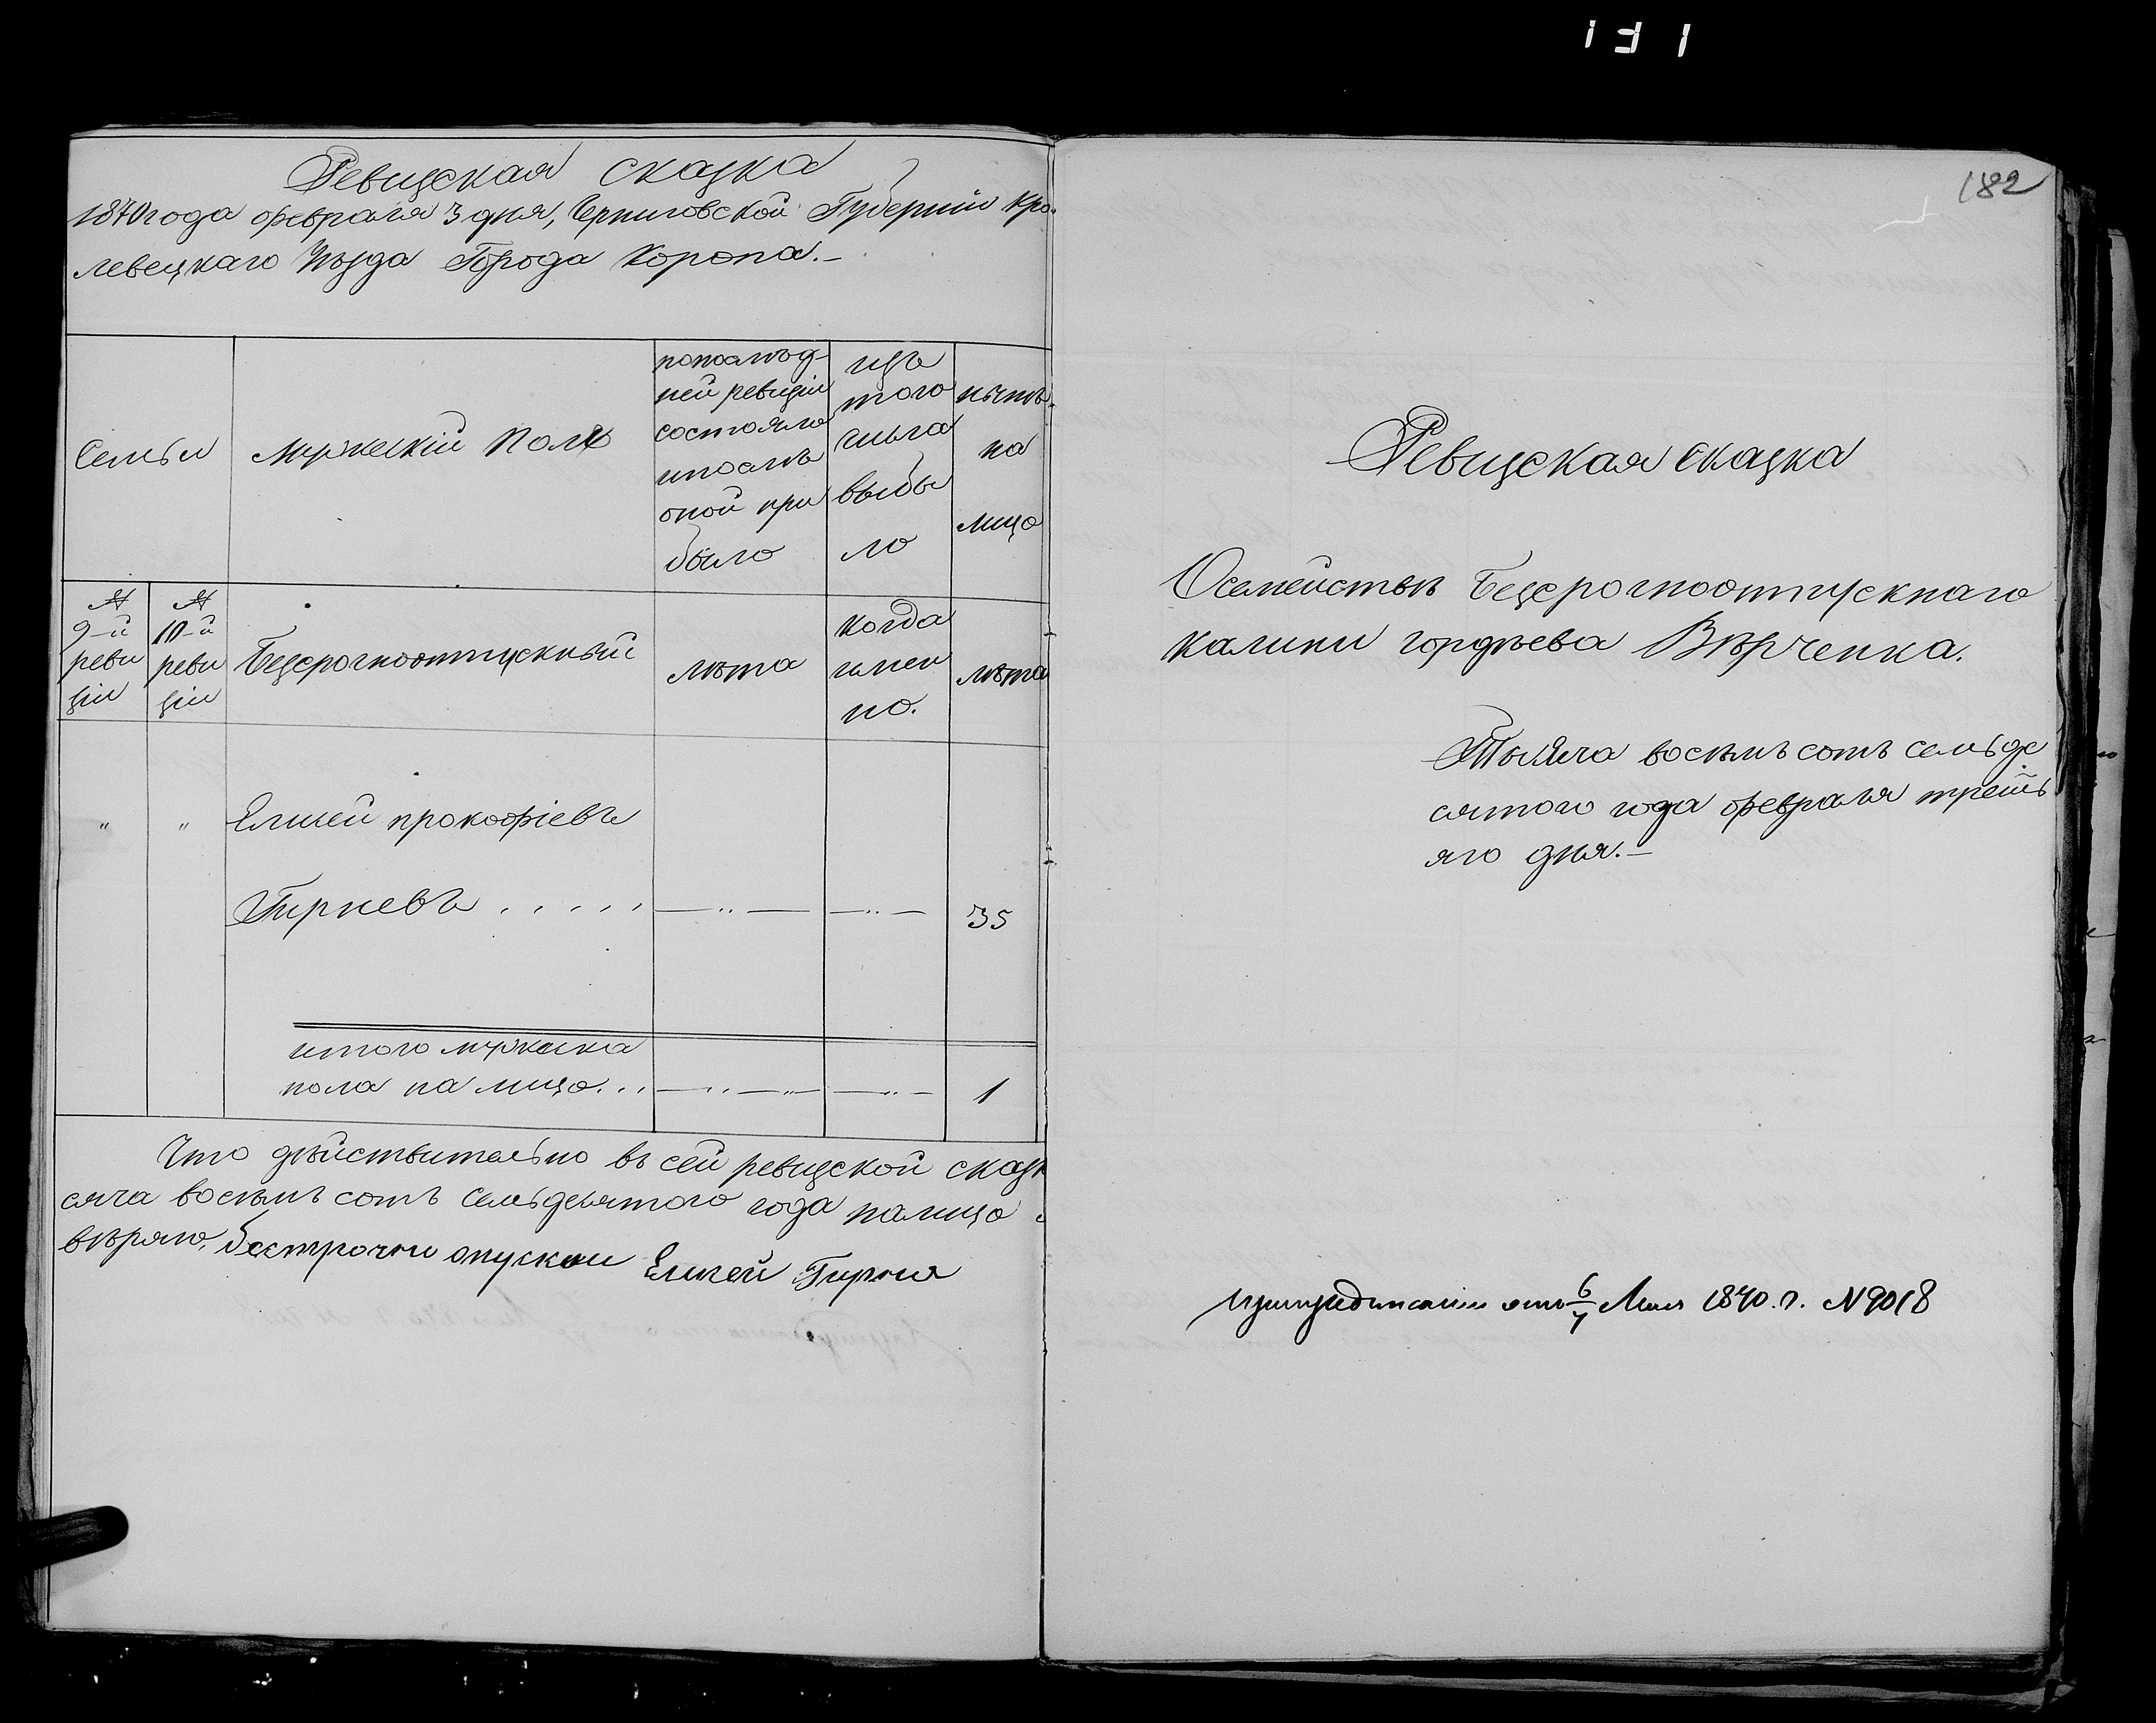 Ревизская сказка
1870 года февраля 3 дня, Черниговской Губерніи Кро-
левецкаго Уѣзда Города Коропа.-
Семьи
Мужескій Полъ
по послѣд-
ней ревизіи
состояло
и послѣ
оной при
было
изъ
того
числа
выбы
ло
нынѣ
на
лицо
№
9-й
реви
зіи
№
10-й
реви
зіи
Безсрочноотпускный
лѣта
когда
имен
но.
лѣта
" " Елисей прокофіевъ
Гирневъ . . . . . —„— —„— 35
итого мужеска
пола на лицо... —„—„— —„— 1
Что дѣйствительно въ сей ревизской сказк
сяча восемьсотъ Семьдесятого года налицо
вѣряю. бестрочни опускни Елисей Гирня
182
Ревизская сказка
О семействѣ Безсрочноотпускнаго
калини гордѣева Вѣрченка.
Тысяча восемьсотъ семьде
сятого года февраля треть
яго дня.-
при предписаніи отъ 6/7 Мая 1870. г. N 9018